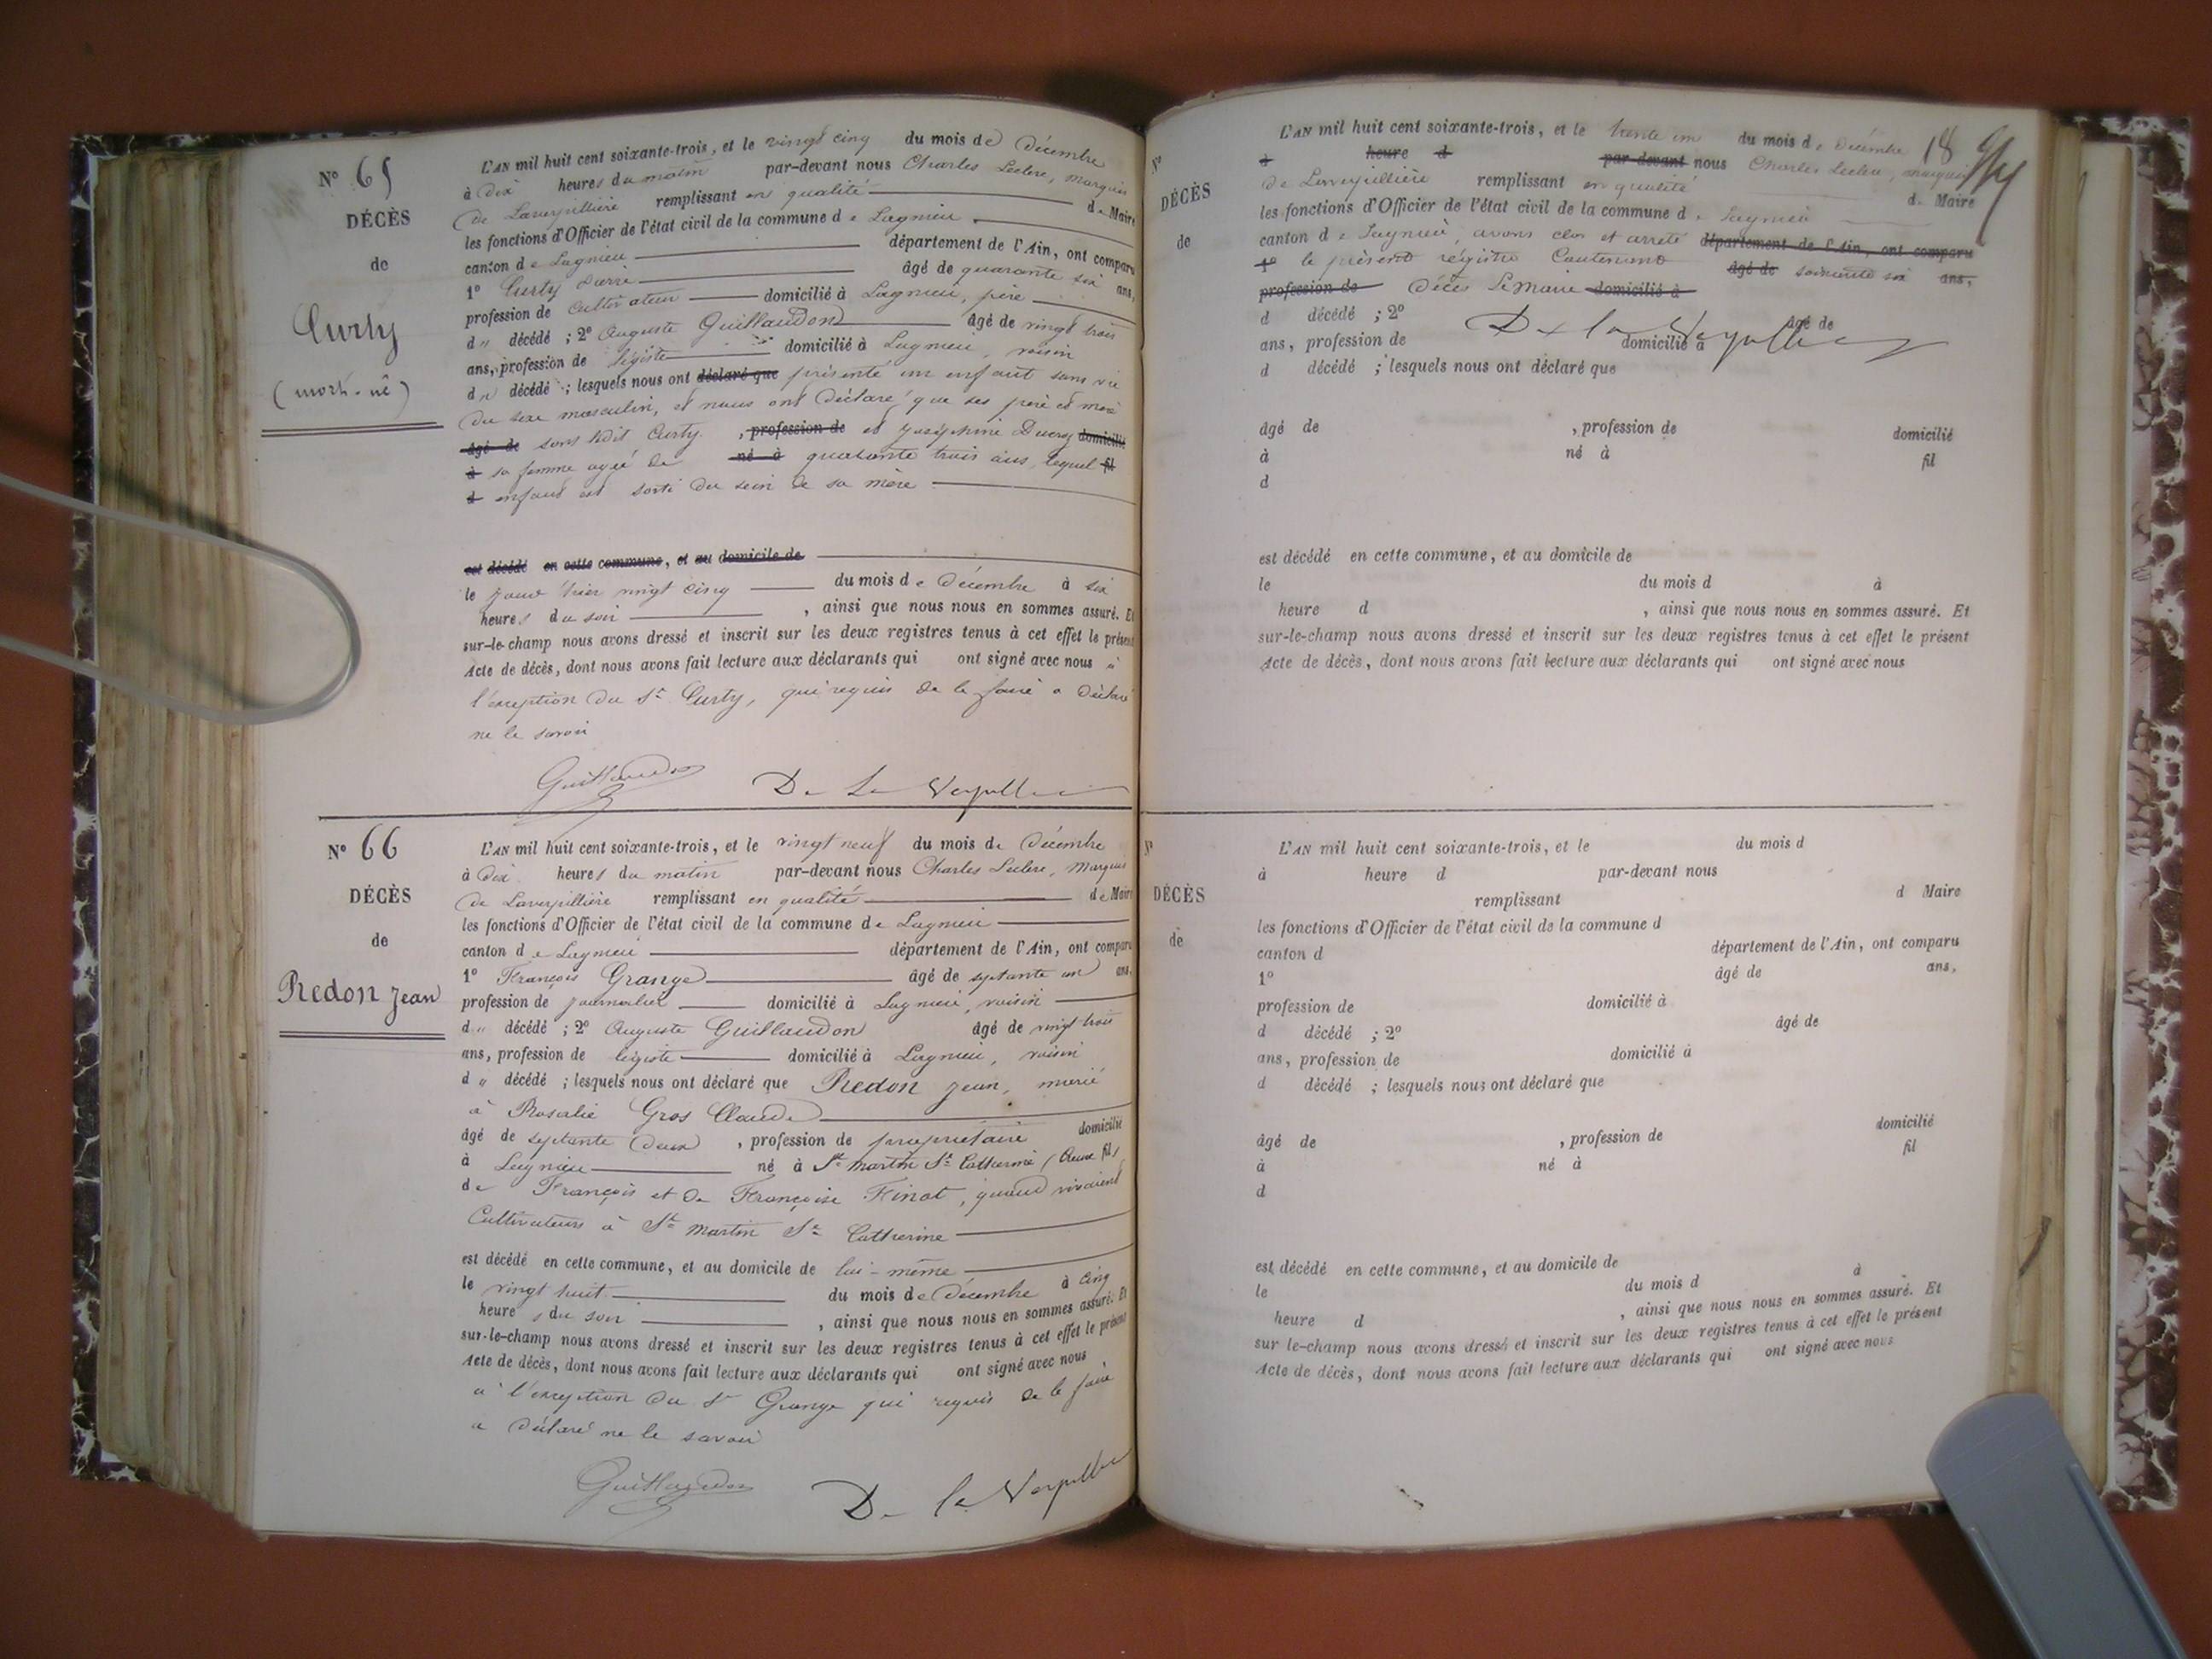 N° 65
DÉCÈS
de
Curty
(mort-né)
L'AN mil huit cent soixante-trois, et le vingt cinq du mois de Décembre
à Dix heures du matin par-devant nous Charles Leclerc, Marquis
de Laverpillière remplissant en qualité de Maire
les fonctions d'Officier de l'état civil de la commune de Lagnieu
canton de Lagnieu département de l'Ain, ont comparu
1° Curty Pierre âgé de quarante six ans,
profession de Cultivateur domicilié à Lagnieu, père
d " décédé ; 2° Auguste Guillaudon âgé de vingt trois
ans, profession de légiste domicilié à Lagnieu, voisin
du décédé ; lesquels nous ont déclaré que présenté un enfant sans vie
du sexe masculin, et nous ont déclaré que ses père et mère
âgé de sont ledit Curty, profession de et Joséphine Ducroz domicilié
à sa femme agée de né à quarante trois ans, lequel fil
d enfant est sorti du sein de sa mère
est décédé en cette commune, et au domicile de
le jour hier vingt cinq du mois de Décembre à six
heures du soir , ainsi que nous nous en sommes assuré. Et
sur-le-champ nous avons dressé et inscrit sur les deux registres tenus à cet effet le présent
Acte de décès, dont nous avons fait lecture aux déclarants qui ont signé avec nous à
l'exception du Sr Curty, qui requis de le faire a déclaré
ne le savoir
Guillaudon De La Verpillière
N° 66
DÉCÈS
de
Redon Jean
L'AN mil huit cent soixante-trois, et le vingt neuf du mois de Décembre
à Dix heures du matin par-devant nous Charles Leclerc, Marquis
de Laverpillière remplissant en qualité de Maire
les fonctions d'Officier de l'état civil de la commune de Lagnieu
canton de Lagnieu département de l'Ain, ont comparu
1° François Grange âgé de septante un ans,
profession de journalier domicilié à Lagnieu, voisin
d " décédé ; 2° Auguste Guillaudon âgé de vingt trois
ans, profession de légiste domicilié à Lagnieu, voisin
d " décédé ; lesquels nous ont déclaré que Redon Jean, marié
à Rosalie Gros Claude
âgé de septante deux , profession de propriétaire domicilié
à Lagnieu né à St martin Ste Catherine (Creuse) fils
de François et de Françoise Finot, quand vivaient
Cultivateurs à St Martin Ste Catherine
est décédé en cette commune, et au domicile de lui-même
le vingt huit du mois de Décembre à cinq
heures du soir , ainsi que nous nous en sommes assuré. Et
sur-le-champ nous avons dressé et inscrit sur les deux registres tenus à cet effet le présent
Acte de décès, dont nous avons fait lecture aux déclarants qui ont signé avec nous,
à l'exception du Sr Grange qui requis de le faire
a déclaré ne le savoir
Guillaudon De la Verpillière
N°
DÉCÈS
de
18
L'AN mil huit cent soixante-trois, et le trente un du mois de Décembre
à heure d par-devant nous Charles Leclerc, marquis
de Laverpillière remplissant en qualité de Maire
les fonctions d'Officier de l'état civil de la commune de Lagnieu
canton de Lagnieu, avons clos et arrêté département de l'Ain, ont comparu
1° le présent régistre Contenant âgé de soixante six ans,
profession de Décès Le Maire domicilié à
d décédé ; 2° De la Verpillière âgé de
ans, profession de domicilié à
d décédé ; lesquels nous ont déclaré que
âgé de , profession de domicilié
à né à fil
d
est décédé en cette commune, et au domicile de
le du mois d à
heure d , ainsi que nous nous en sommes assuré. Et
sur-le-champ nous avons dressé et inscrit sur les deux registres tenus à cet effet le présent
Acte de décès, dont nous avons fait lecture aux déclarants qui ont signé avec nous
N°
DÉCÈS
de
L'AN mil huit cent soixante-trois, et le du mois d
à heure d par-devant nous
remplissant d Maire
les fonctions d'Officier de l'état civil de la commune d
canton d département de l'Ain, ont comparu
1° âgé de ans,
profession de domicilié à
d décédé ; 2° âgé de
ans, profession de domicilié à
d décédé ; lesquels nous ont déclaré que
âgé de , profession de domicilié
à né à fil
d
est décédé en cette commune, et au domicile de
le du mois d à
heure d , ainsi que nous nous en sommes assuré. Et
sur le-champ nous avons dressé et inscrit sur les deux registres tenus à cet effet le présent
Acte de décès, dont nous avons fait lecture aux déclarants qui ont signé avec nous